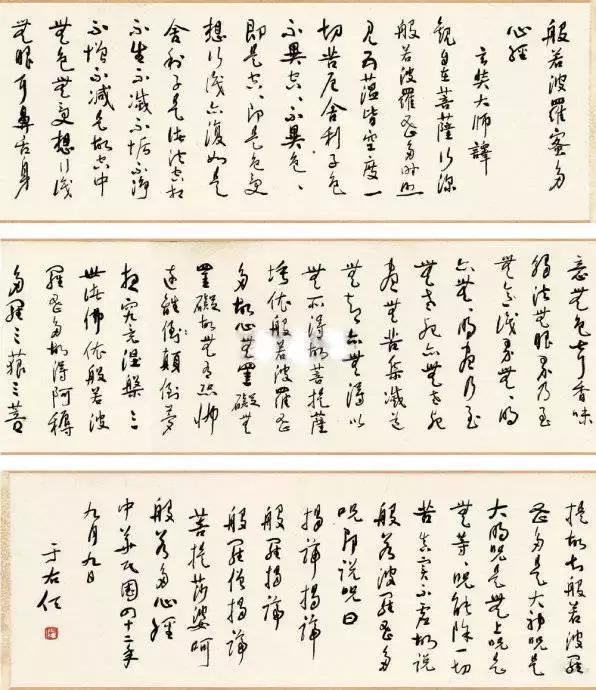 般若波羅蜜多
心經
玄奘大師譯
觀自在菩薩行深
般若波羅蜜多時照
見五蘊皆空度一
切苦厄舍利子色
不異空、不異色、
即是空、即是色受
想行識亦復如是
舍利子是諸法空相
不生不滅不垢不淨
不增不減是故空中
無色無受想行識
無眼耳鼻舌身
意無色聲香味
觸法無眼界乃至
無意識界無、明
亦無、明盡乃至
無老死亦無老死
盡無苦集滅道
無智亦無得以
無所得故菩提薩
埵依般若波羅蜜
多故心無罣礙無
罣礙故無有恐怖
遠離顛倒夢
想究竟涅槃三
世諸佛依般若波
羅蜜多故得阿耨
多羅三藐三菩
提故知般若波羅
蜜多是大神咒是
大明咒是無上咒是
無等、咒能除一切
苦真實不虛故說
般若波羅蜜多
咒即說咒曰
揭諦揭諦
般羅揭諦
般羅僧揭諦
菩提莎婆呵
般若多心經
中華民國四十二年
九月九日
于右任